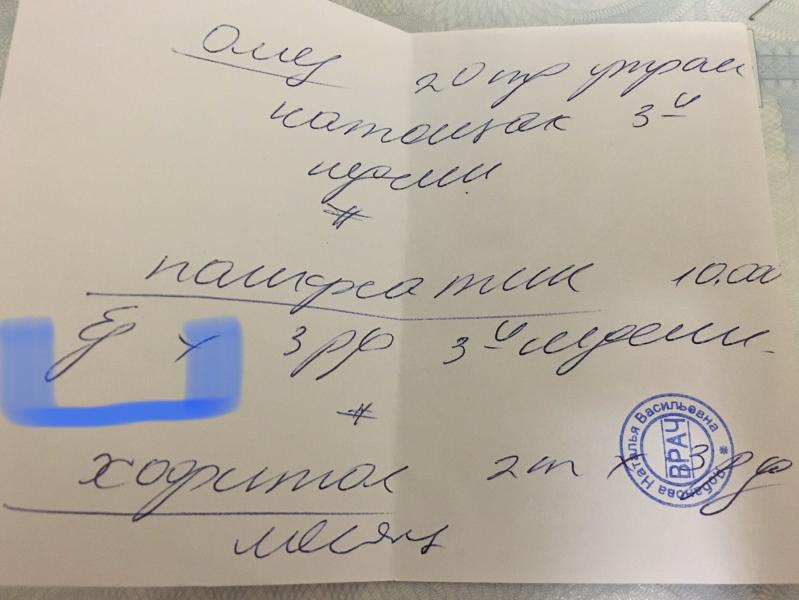 Омез 20 mg утром
натощак 3 й
недели
#
панкреатин 10.000
Ед х 3 р/д 3 й недели
#
хофитол 2т х 3 р д
месяц
Наталья Васильевна
ВРАЧ